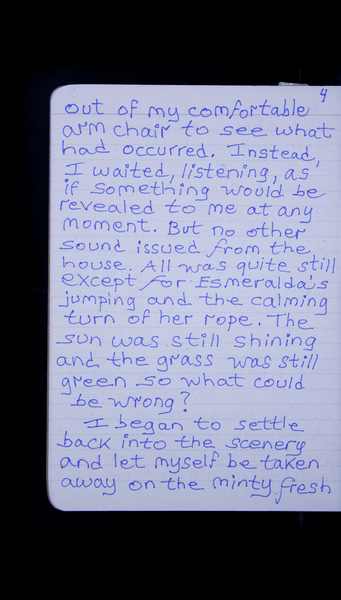 4
out of my comfortable
arm chair to see what
had occurred. Instead,
I waited, listening, as
if something would be
revealed to me at any
moment. But no other
sound issued from the
house. All was quite still
except for Esmeralda's
jumping and the calming
turn of her rope. The
sun was still shining
and the grass was still
green so what could
be wrong?
I began to settle
back into the scenery
and let myself be taken
away on the minty fresh